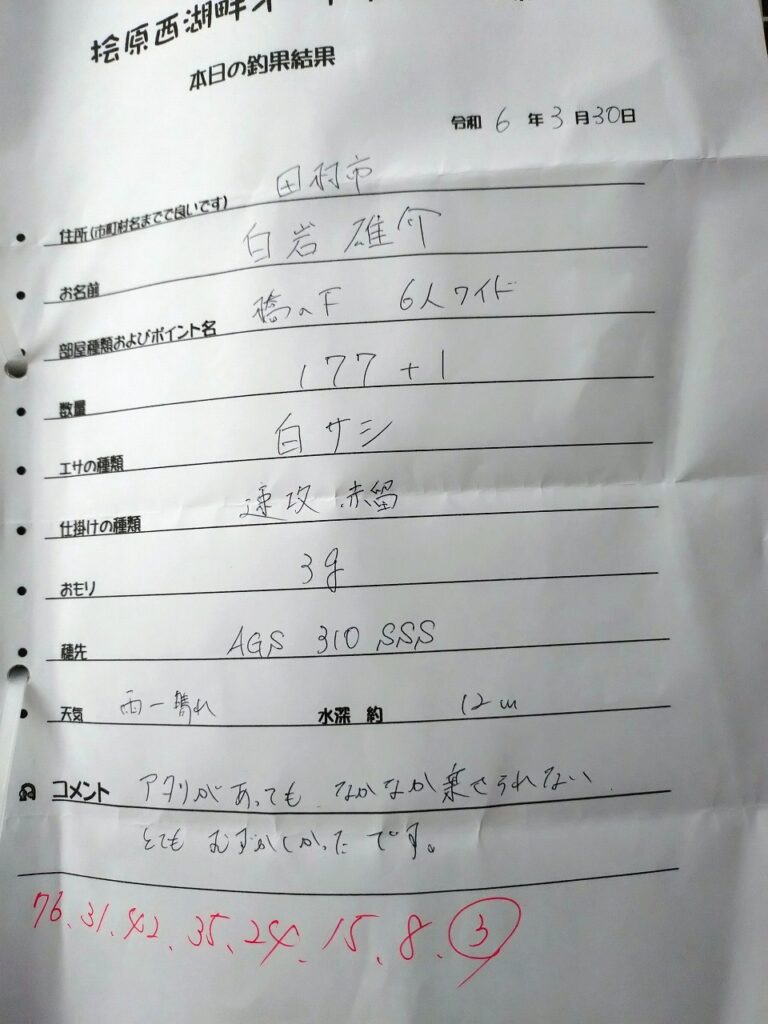 桧原西湖畔オート
本日の釣果結果
令和 6 年 3 月 30日
住所(市町村名までで良いです) 田村市
お名前 白岩 雄介
部屋種類およびポイント名 橋の下 6人ワイド
数量 177+1
エサの種類 白サシ
仕掛けの種類 速攻 赤留
おもり 3g
穂先 AGS 310 SSS
天気 雨→晴れ 水深 約 12m
コメント アタリがあっても なかなか乗せられない
とても むずかしかったです。
76、31、42、35、24、15、8、3